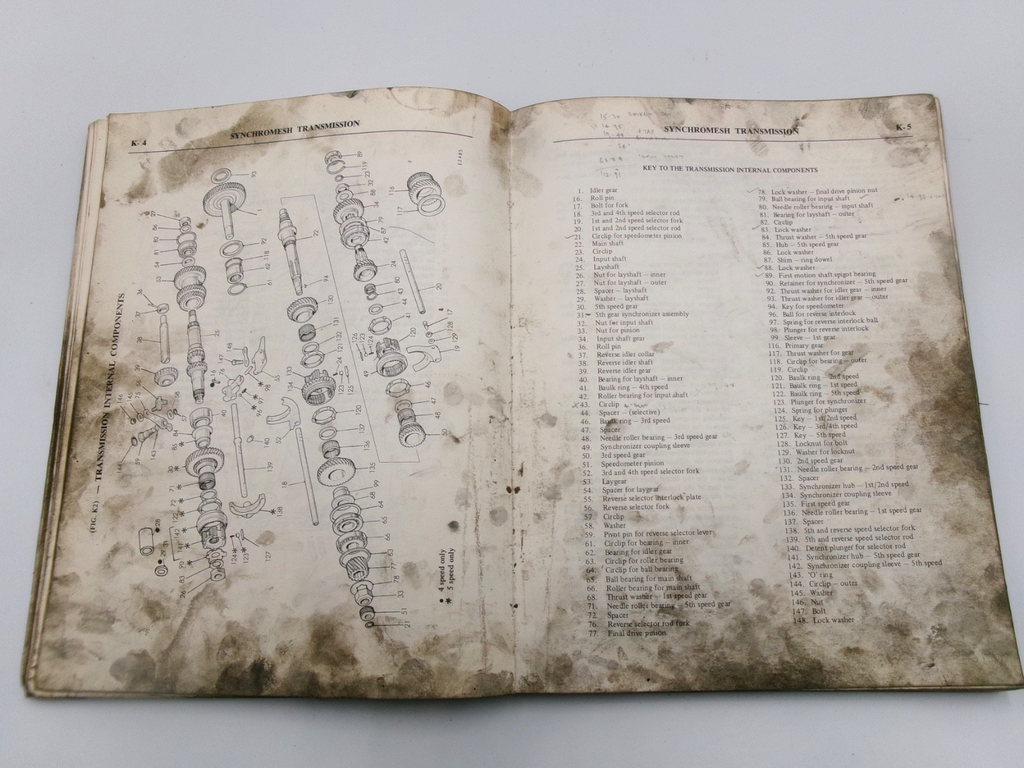 K-4
SYNCHROMESH TRANSMISSION
(FIG. K3) — TRANSMISSION INTERNAL COMPONENTS
4 speed only
5 speed only
SYNCHROMESH TRANSMISSION
K-5
KEY TO THE TRANSMISSION INTERNAL COMPONENTS
1. Idler gear
16. Roll pin
17. Bolt for fork
18. 3rd and 4th speed selector rod
19. 1st and 2nd speed selector fork
20. 1st and 2nd speed selector rod
21. Circlip for speedometer pinion
22. Main shaft
23. Circlip
24. Input shaft
25. Layshaft
26. Nut for layshaft — inner
27. Nut for layshaft — outer
28. Spacer — layshaft
29. Washer — layshaft
30. 5th speed gear
31. 5th gear synchronizer assembly
32. Nut for input shaft
33. Nut for pinion
34. Input shaft gear
36. Roll pin
37. Reverse idler collar
38. Reverse idler shaft
39. Reverse idler gear
40. Bearing for layshaft — inner
41. Baulk ring — 4th speed
42. Roller bearing for input shaft
43. Circlip
44. Spacer — (selective)
46. Baulk ring — 3rd speed
47. Spacer
48. Needle roller bearing — 3rd speed gear
49. Synchronizer coupling sleeve
50. 3rd speed gear
51. Speedometer pinion
52. 3rd and 4th speed selector fork
53. Laygear
54. Spacer for laygear
55. Reverse selector interlock plate
56. Reverse selector fork
57. Circlip
58. Washer
59. Pivot pin for reverse selector lever
61. Circlip for bearing — inner
62. Bearing for idler gear
63. Circlip for roller bearing
64. Circlip for ball bearing
65. Ball bearing for main shaft
66. Roller bearing for main shaft
68. Thrust washer — 1st speed gear
71. Needle roller bearing — 5th speed gear
72. Spacer
76. Reverse selector rod fork
77. Final drive pinion
78. Lock washer — final drive pinion nut
79. Ball bearing for input shaft
80. Needle roller bearing — input shaft
81. Bearing for layshaft — outer
82. Circlip
83. Lock washer
84. Thrust washer — 5th speed gear
85. Hub — 5th speed gear
86. Lock washer
87. Shim — ring dowel
88. Lock washer
89. First motion shaft spigot bearing
90. Retainer for synchronizer — 5th speed gear
92. Thrust washer for idler gear — inner
93. Thrust washer for idler gear — outer
94. Key for speedometer
96. Ball for reverse interlock
97. Spring for reverse interlock ball
98. Plunger for reverse interlock
99. Sleeve — 1st gear
116. Primary gear
117. Thrust washer for gear
118. Circlip for bearing — outer
119. Circlip
120. Baulk ring — 2nd speed
121. Baulk ring — 1st speed
122. Baulk ring — 5th speed
123. Plunger for synchronizer
124. Spring for plunger
125. Key — 1st/2nd speed
126. Key — 3rd/4th speed
127. Key — 5th speed
128. Locknut for bolt
129. Washer for locknut
130. 2nd speed gear
131. Needle roller bearing — 2nd speed gear
132. Spacer
133. Synchronizer hub — 1st/2nd speed
134. Synchronizer coupling sleeve
135. First speed gear
136. Needle roller bearing — 1st speed gear
137. Spacer
138. 5th and reverse speed selector fork
139. 5th and reverse speed selector rod
140. Detent plunger for selector rod
141. Synchronizer hub — 5th speed gear
142. Synchronizer coupling sleeve — 5th speed
143. 'O' ring
144. Circlip — outer
145. Washer
146. Nut
147. Bolt
148. Lock washer